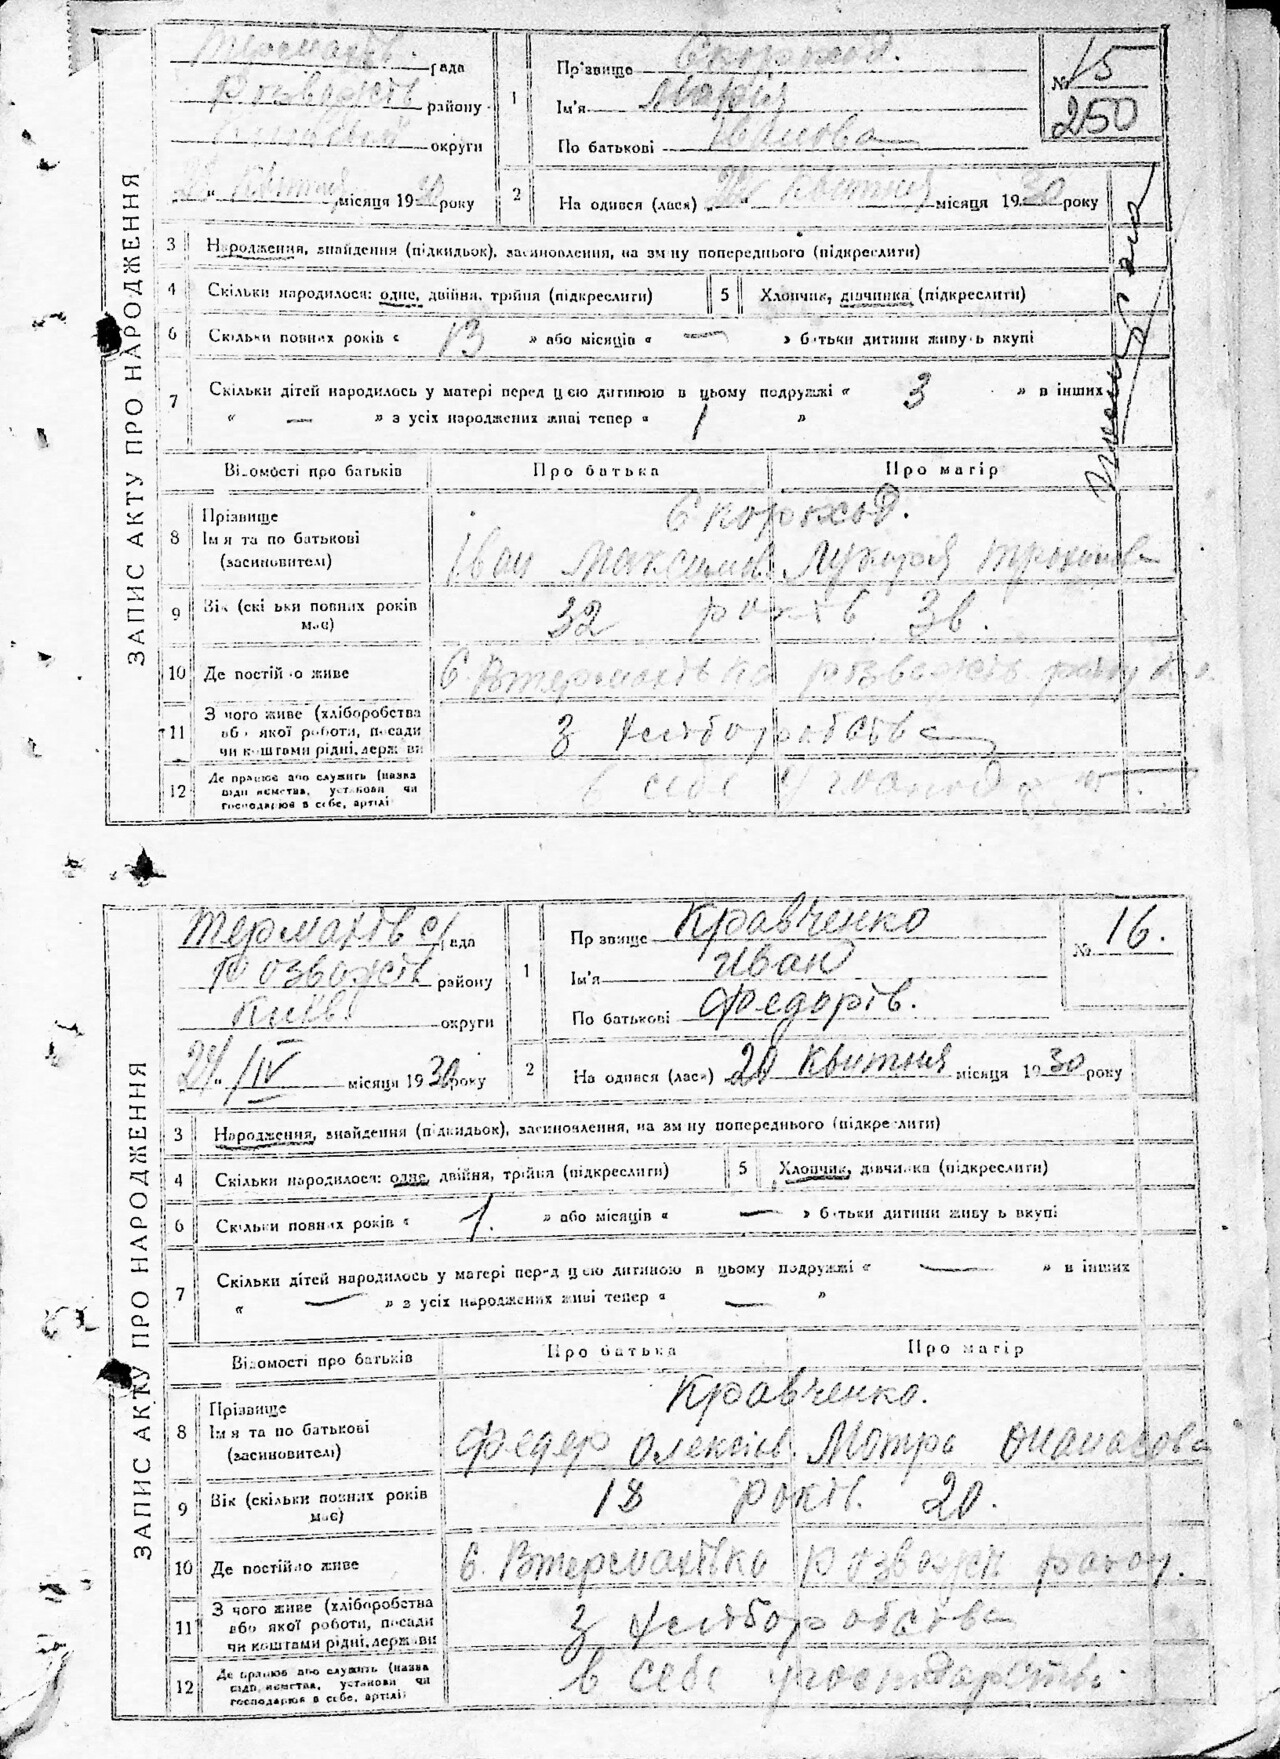 ЗАПИС АКТУ ПРО НАРОДЖЕННЯ
Термахів. рада
Розважів району
округи
Квітня місяця 1930 року
1
Прізвище Скороход.
Ім'я Марія
По батькові Іванова
№ 15
250
2
На одився (лася) Квітня місяця 1930 року
3 Народження, знайдення (підкидьок), засиновлення, на зміну попереднього (підкреслити)
4 Скільки народилося: одне, двійня, трійня (підкреслити)
5 Хлопчик, дівчинка (підкреслити)
6 Скільки повних років « 13 » або місяців « — » батьки дитини живуть вкупі
7 Скільки дітей народилось у матері перед цією дитиною в цьому подружжі « 3 » в інших
« — » з усіх народжених живі тепер « 1 »
Відомості про батьків Про батька Про матір
8 Прізвище
Ім'я та по батькові
(засиновителі)
Скороход.
Іван Максимів.
9 Вік (скільки повних років
має)
32 років
10 Де постійно живе
11 З чого живе (хліборобства
або якої роботи, посади
чи коштами рідні, держави
З хліборобства
12 Де працює або служить (назва
підприємства, установи чи
господарює в себе, артілі
в себе
ЗАПИС АКТУ ПРО НАРОДЖЕННЯ
Термахів с/рада
Розважів району
Київ. округи
/IV місяця 1930 року
1
Прізвище Кравченко
Ім'я Иван
По батькові Федорів.
№ 16.
2
На одився (лася) 20 Квитня місяця 1930 року
3 Народження, знайдення (підкидьок), засиновлення, на зміну попереднього (підкреслити)
4 Скільки народилося: одне, двійня, трійня (підкреслити)
5 Хлопчик, дівчинка (підкреслити)
6 Скільки повних років « 1. » або місяців « — » батьки дитини живуть вкупі
7 Скільки дітей народилось у матері перед цією дитиною в цьому подружжі « — » в інших
« — » з усіх народжених живі тепер « — »
Відомості про батьків Про батька Про матір
8 Прізвище
Ім'я та по батькові
(засиновителі)
Кравченко.
Федер Олексіів. Мотря Опанасова
9 Вік (скільки повних років
має)
18 років. 20.
10 Де постійно живе
11 З чого живе (хліборобства
або якої роботи, посади
чи коштами рідні, держави
З хліборобства
12 Де працює або служить (назва
підприємства, установи чи
господарює в себе, артілі
в себе